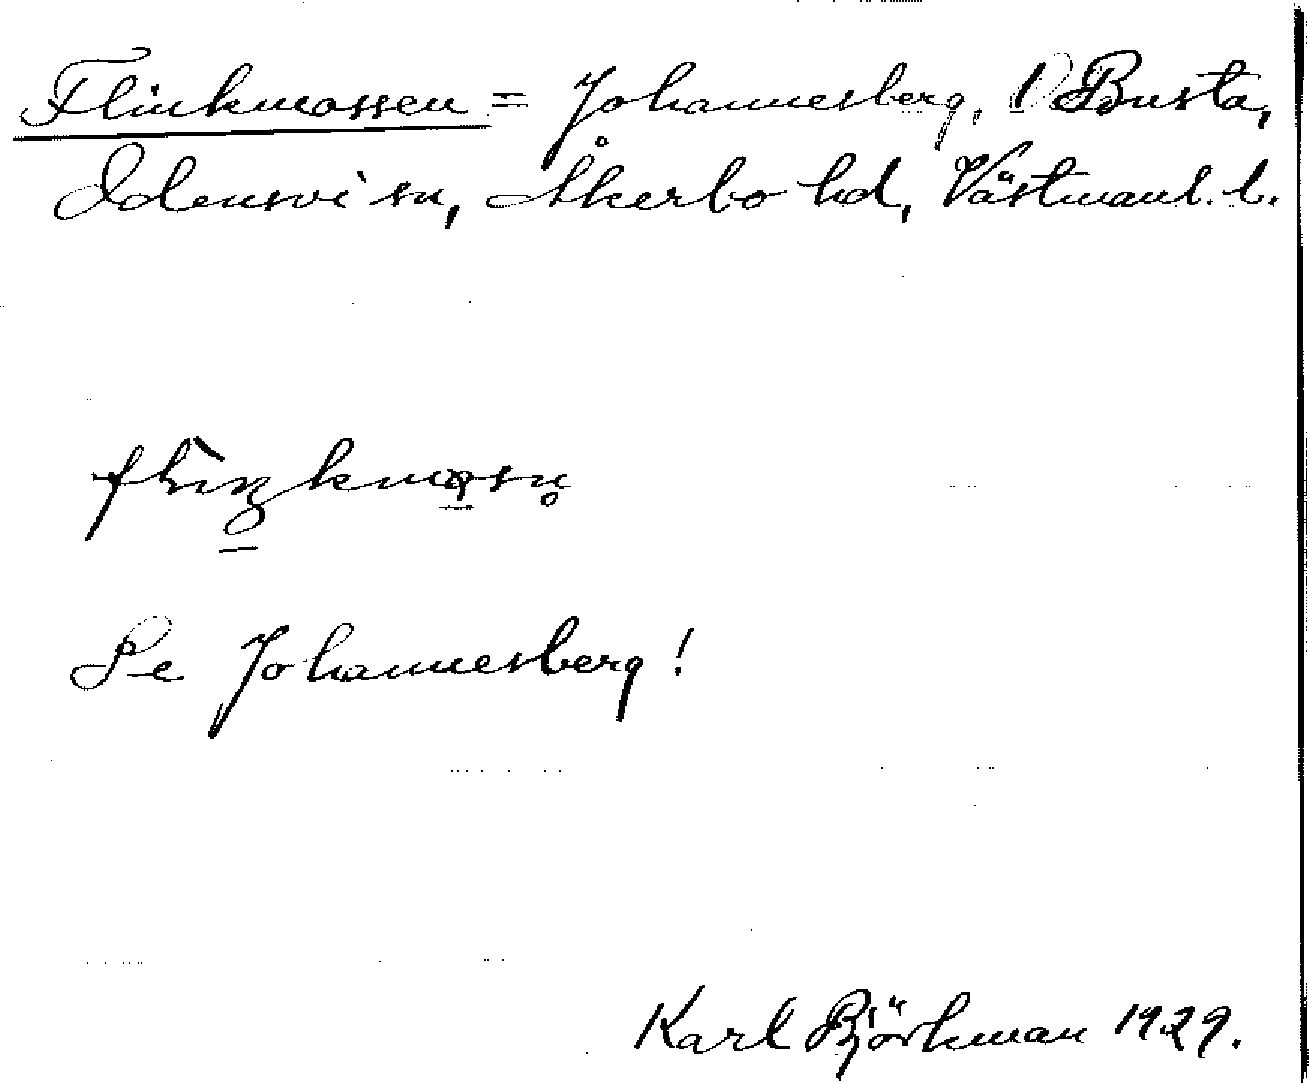 Flinkmossen = Johannesberg, D Busta,
Odensvi sn, Åkerbo hd, Västmanl. l.
Se Johannesberg!
Karl Björkman 1929.